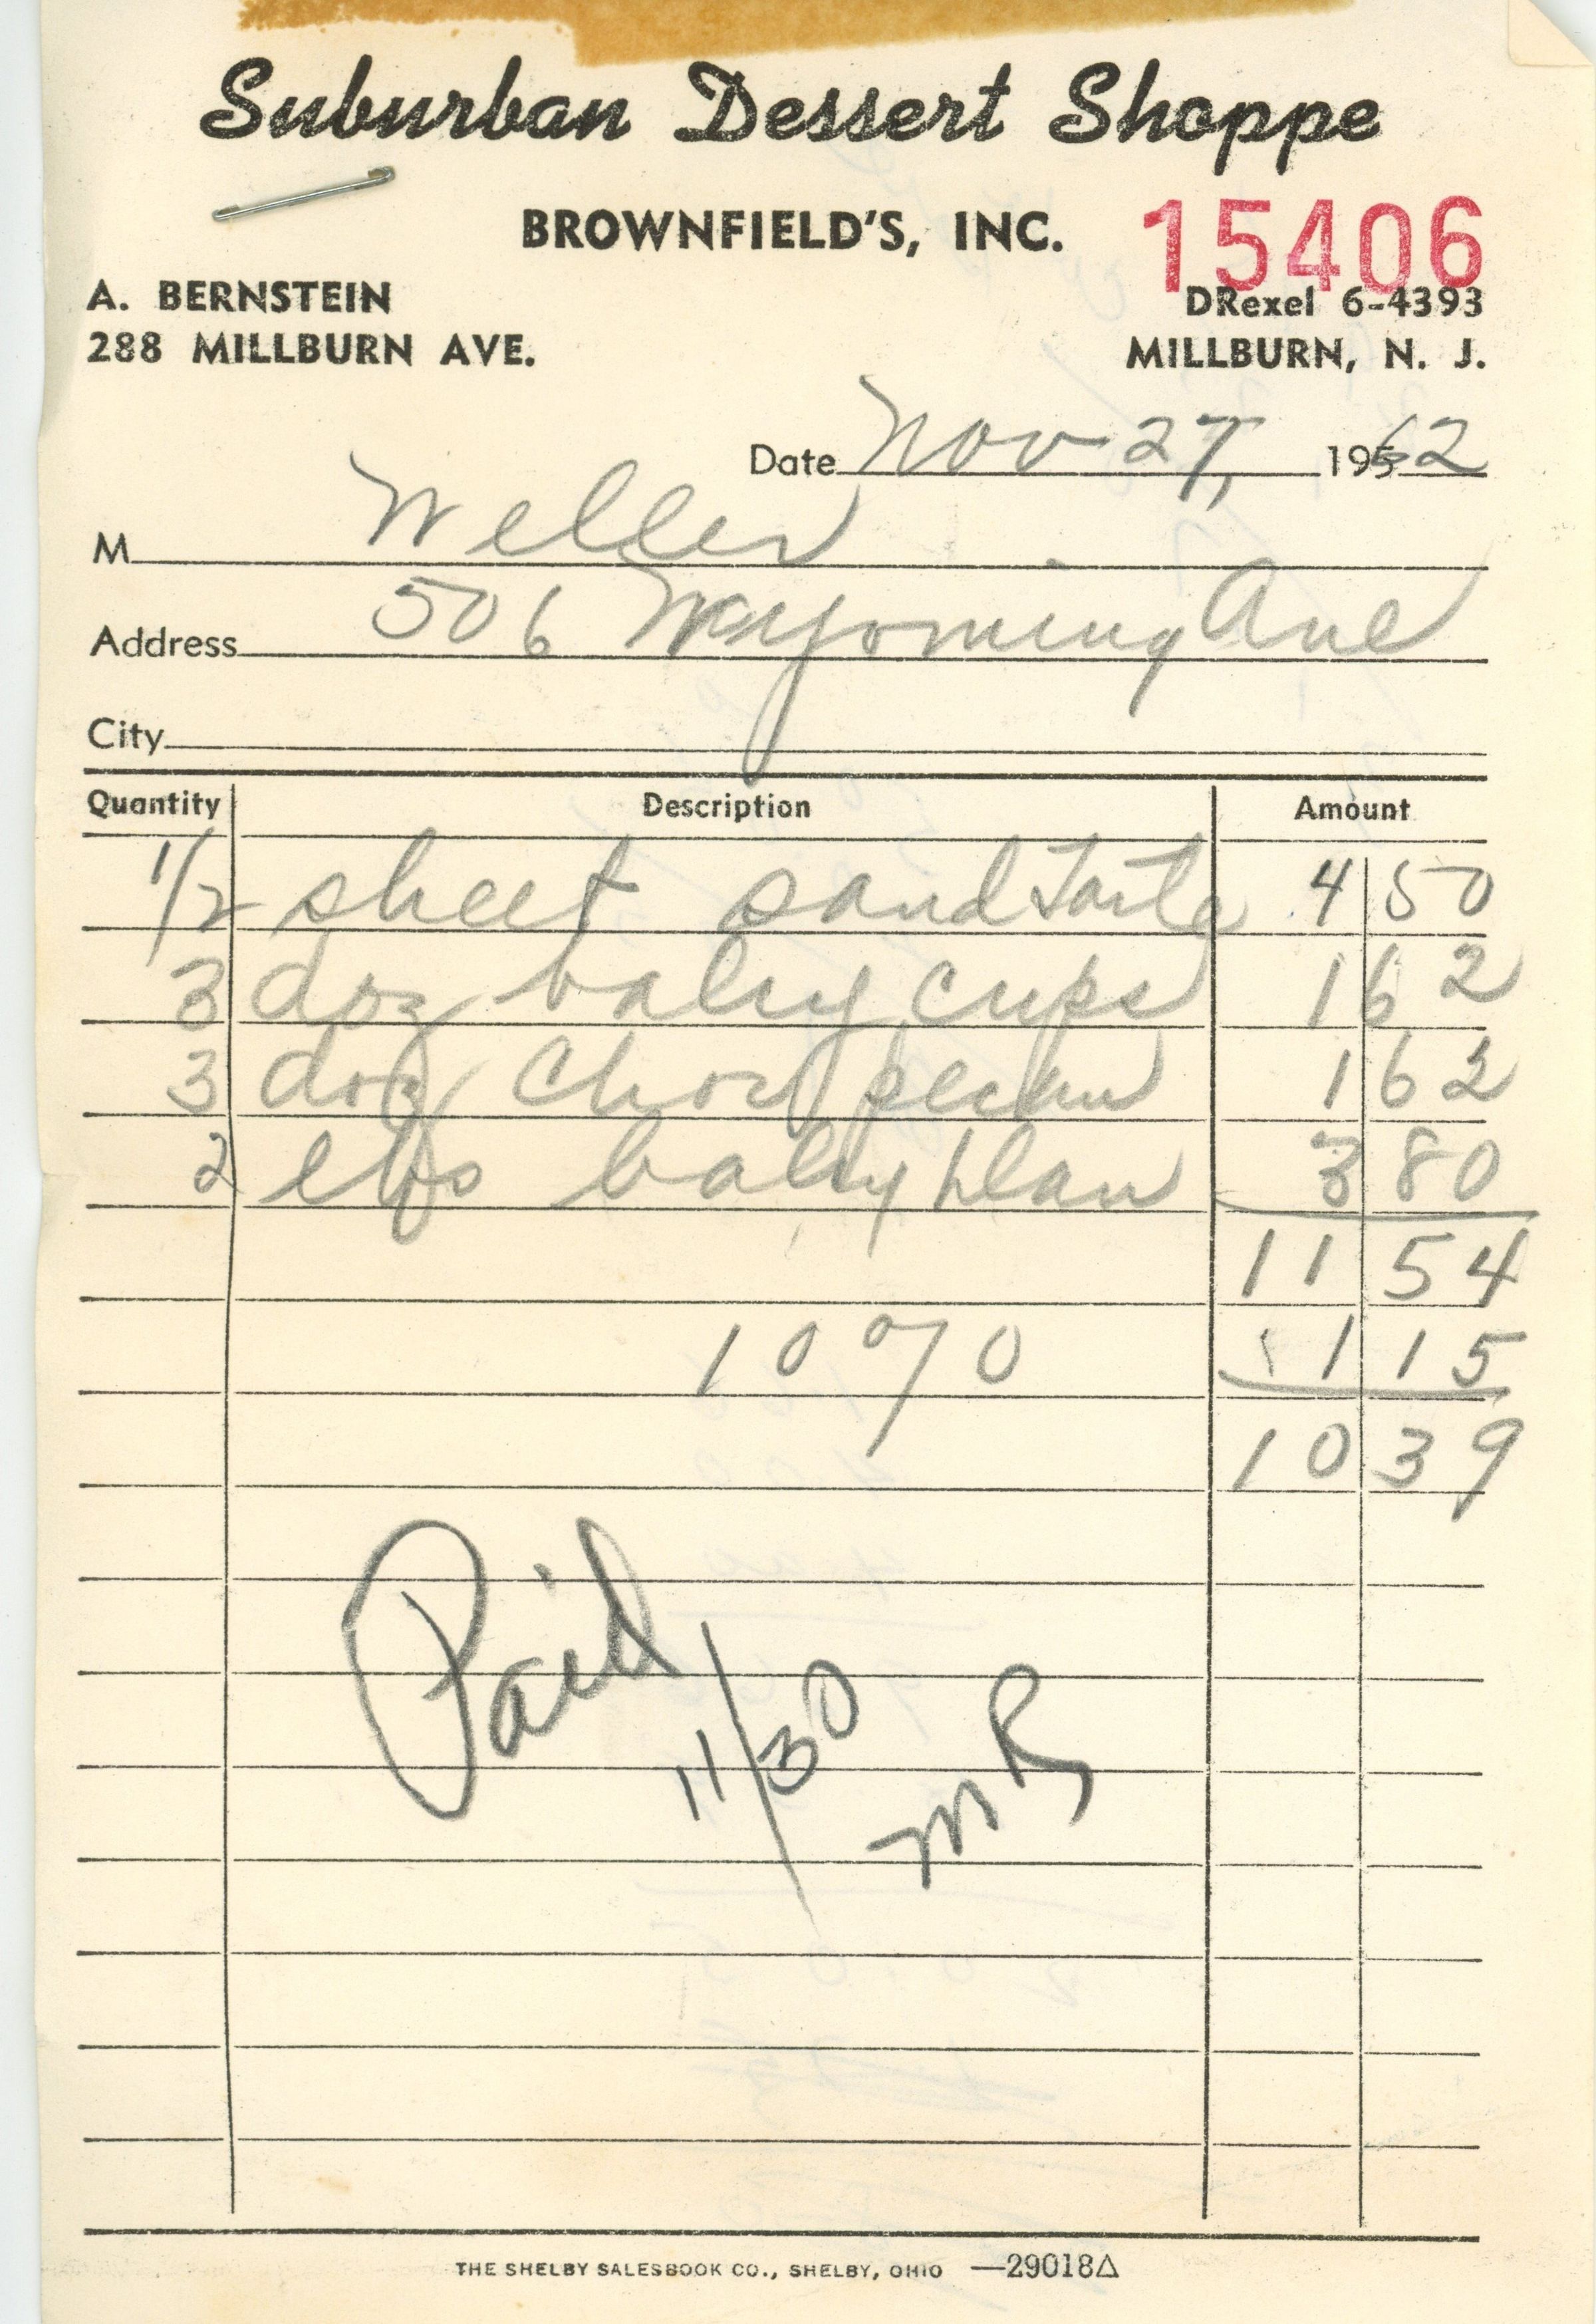 Suburban Dessert Shoppe
BROWNFIELD'S, INC.
15406
A. BERNSTEIN
DRexel 6-4393
288 MILLBURN AVE.
MILLBURN, N. J.
Date Nov 27, 1962
M Weller
Address 506 Wyoming Ave
City
Quantity Description Amount
1/2 sheet sand Tarts 4 50
3 doz baby cups 1 62
3 doz choc pecan 1 62
2 lbs baby Dan 3 80
11 54
10% 1 15
10 39
Paid
11/30
MR
THE SHELBY SALESBOOK CO., SHELBY, OHIO —29018△